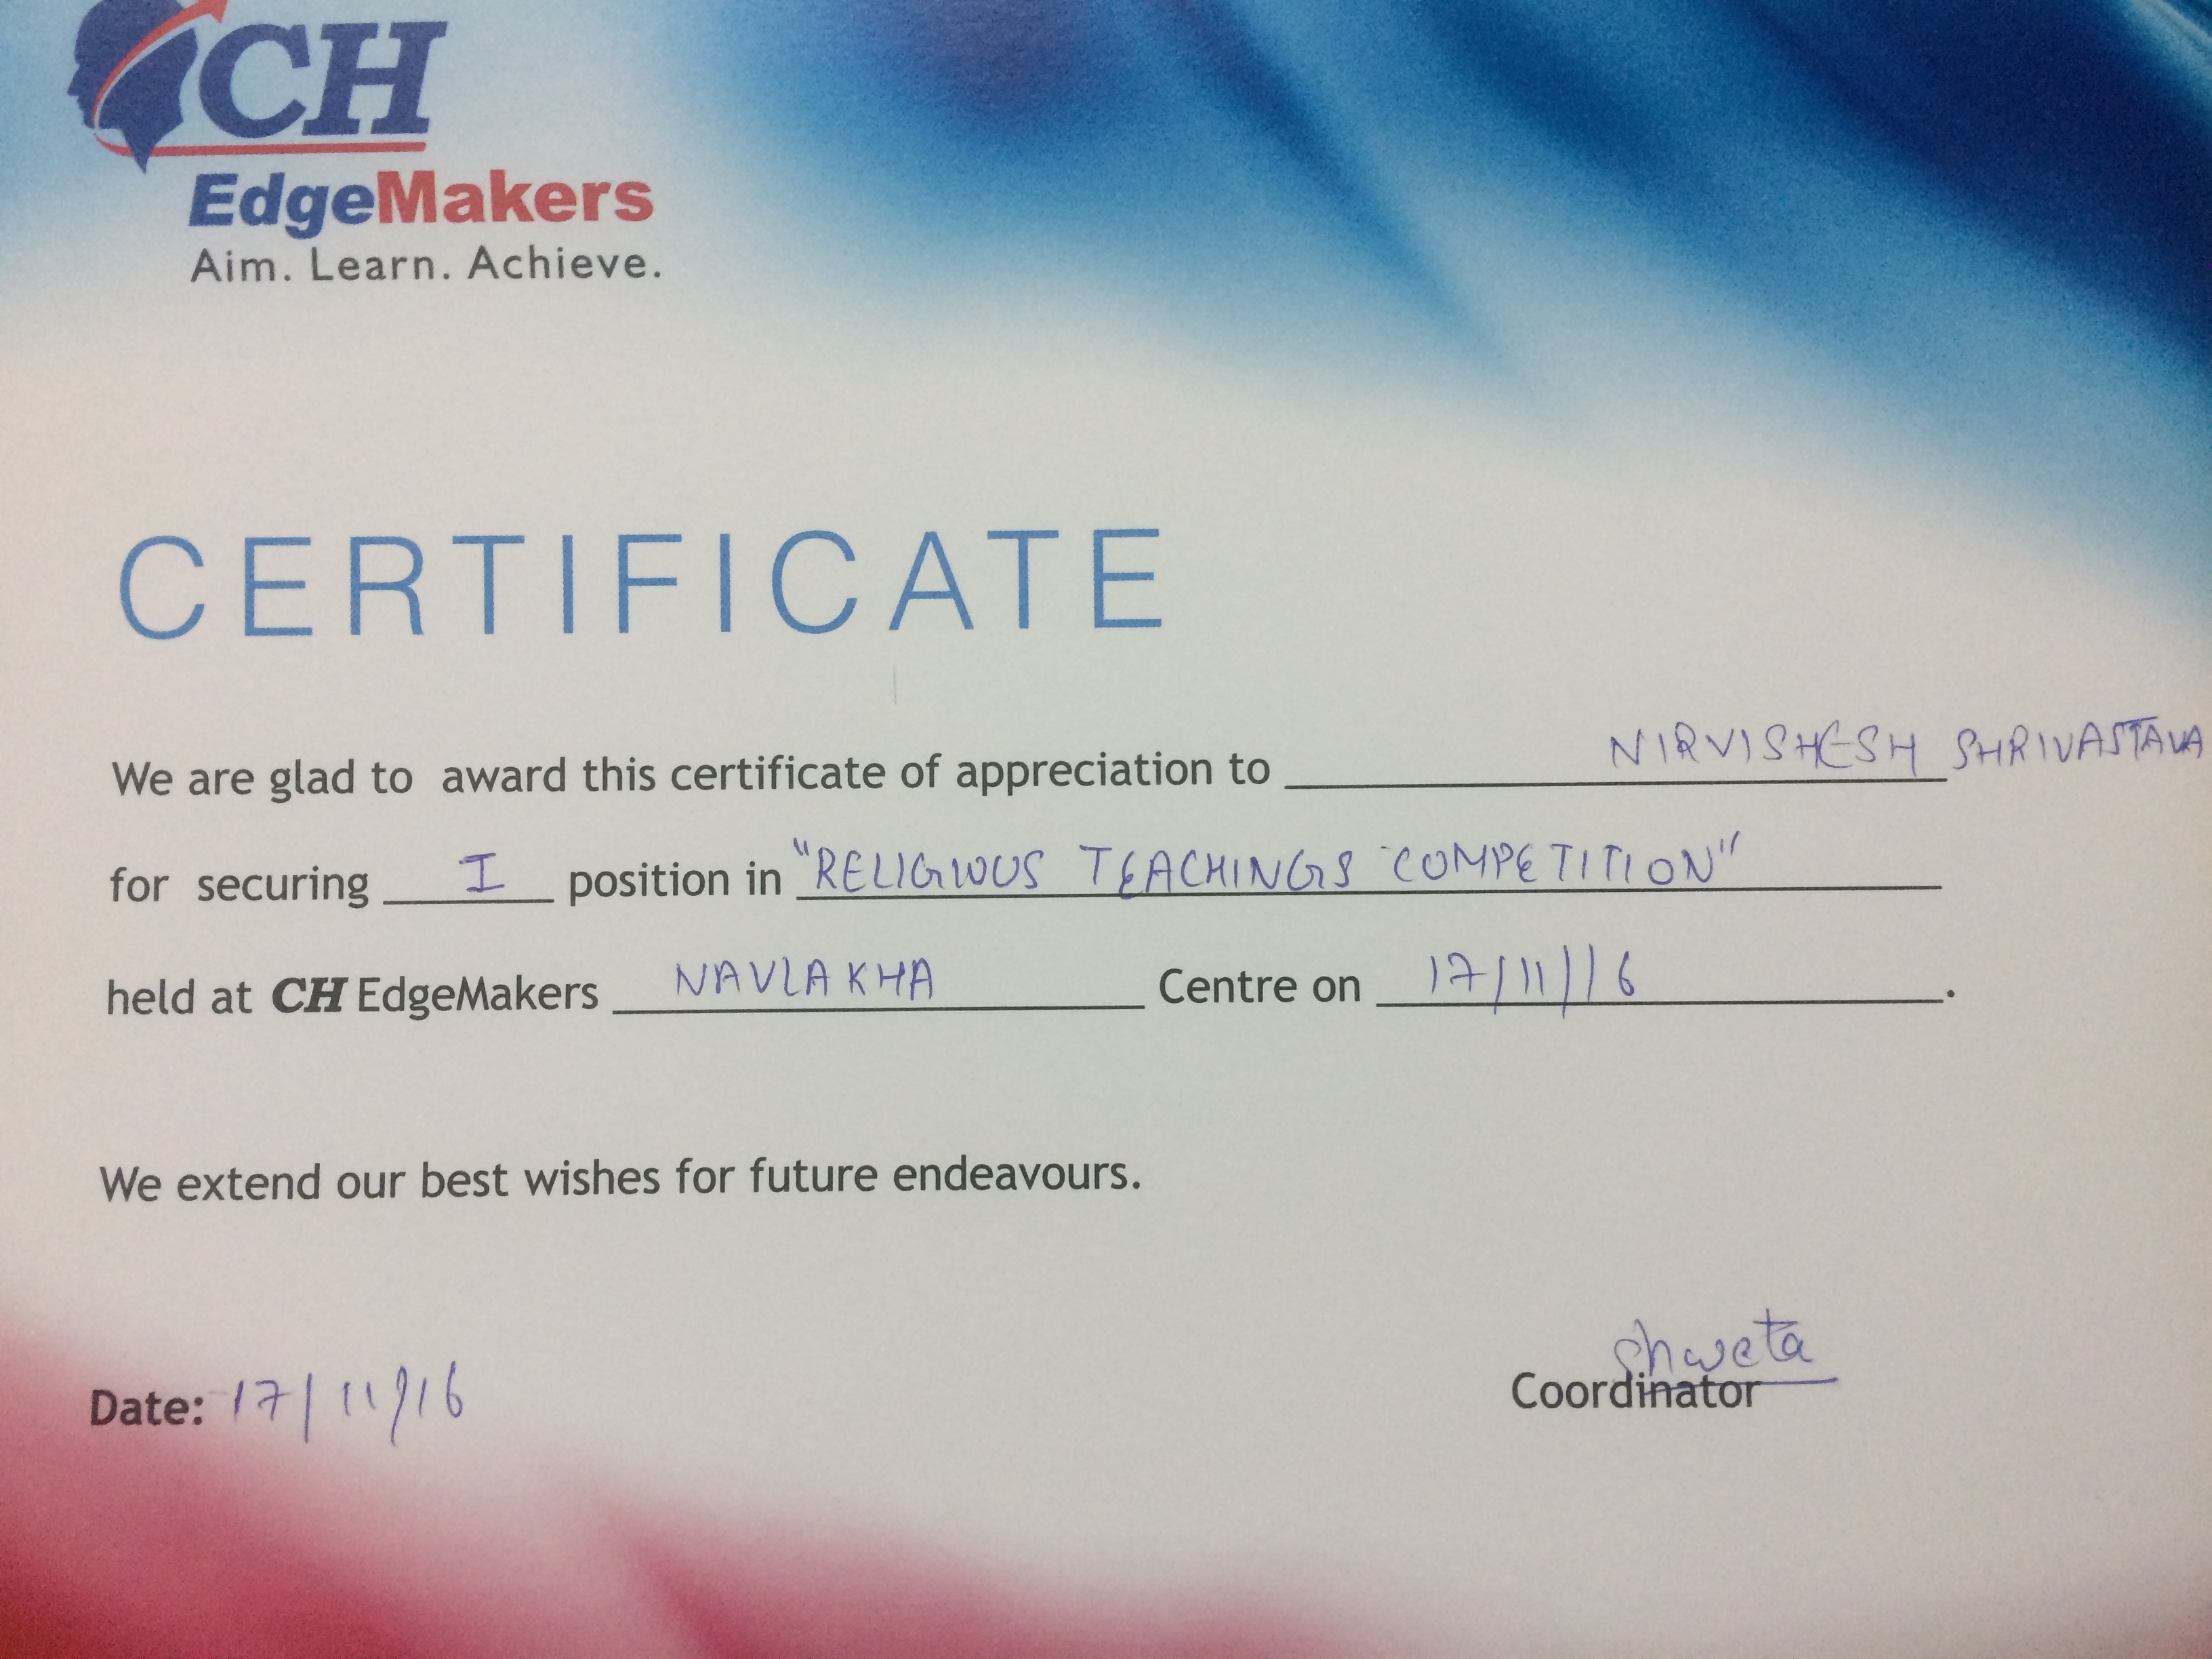 CH
EdgeMakers
Aim. Learn. Achieve.
CERTIFICATE
We are glad to award this certificate of appreciation to NIRVISHESH SHRIVASTAVA
for securing I position in "RELIGIOUS TEACHINGS COMPETITION"
held at CH EdgeMakers NAVLAKHA Centre on 17/11/16.
We extend our best wishes for future endeavours.
Shweta
Date: 17/11/16 Coordinator